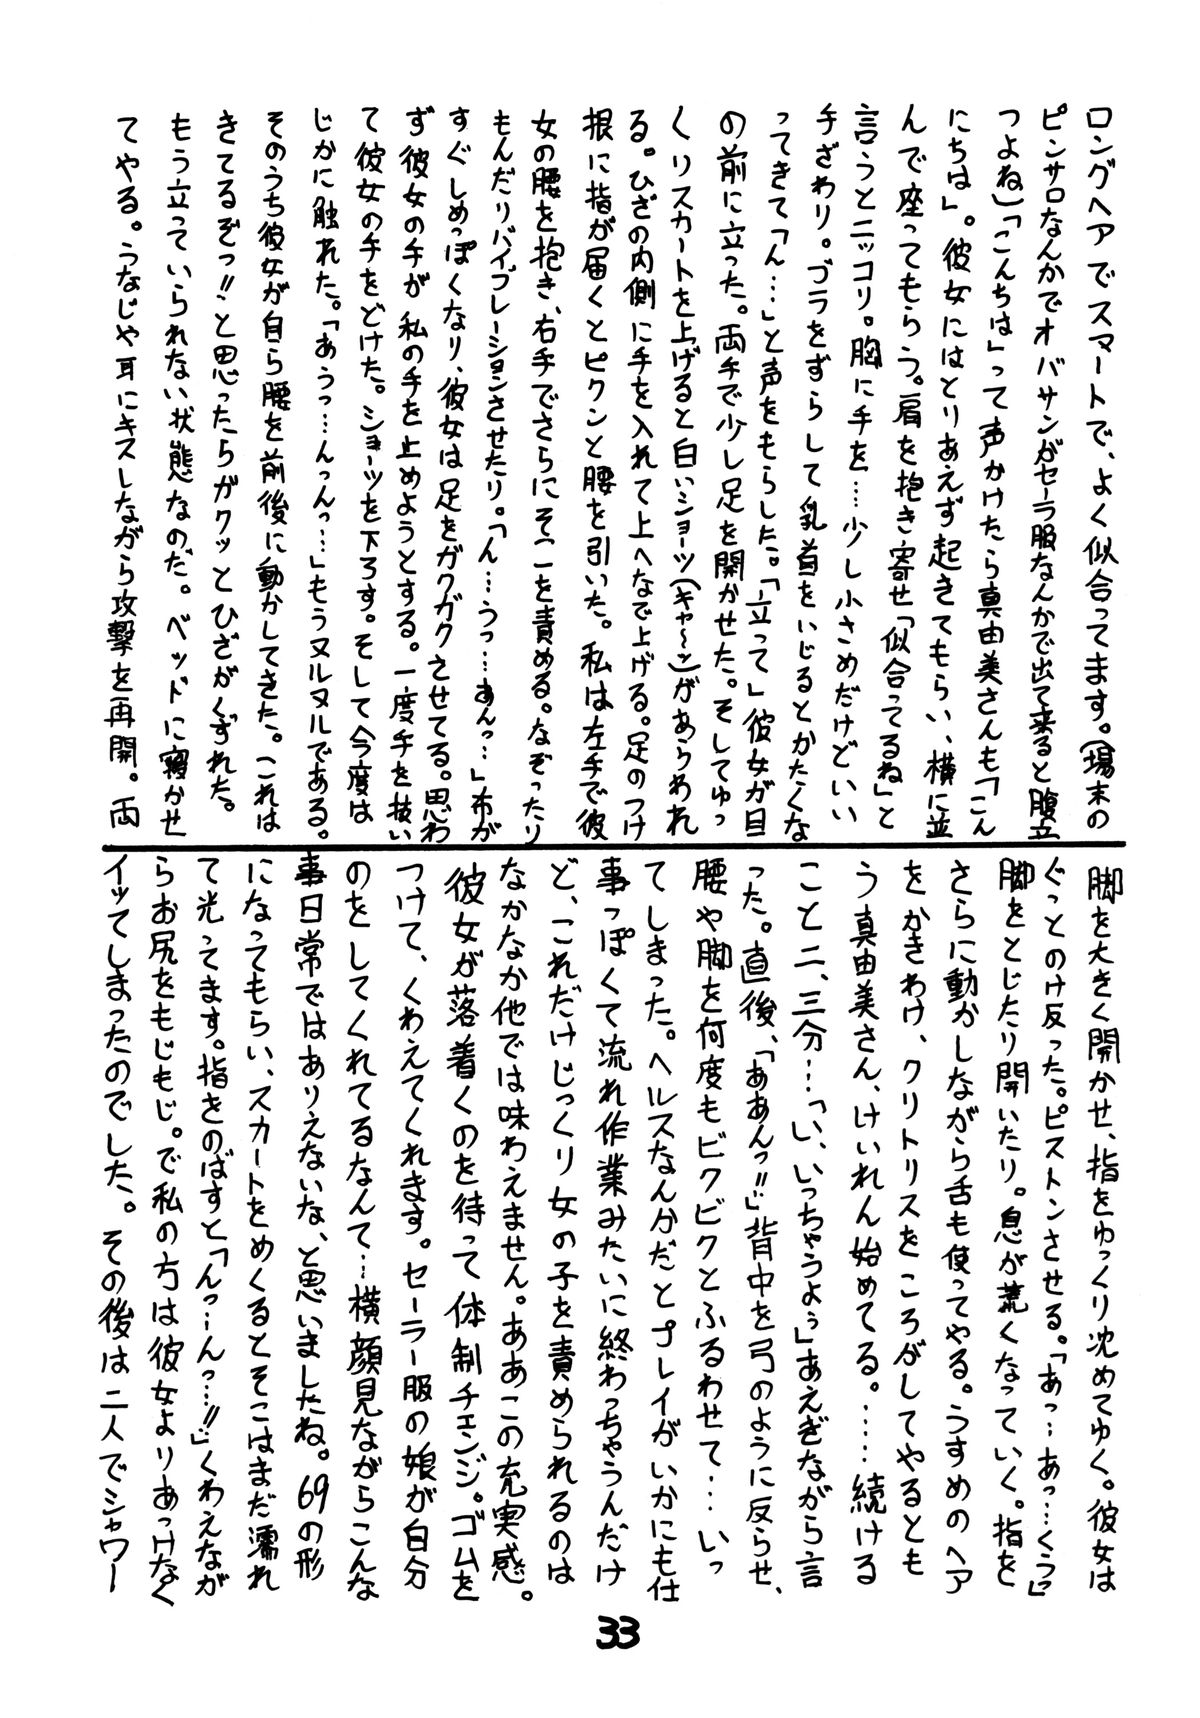 ロングヘアでスマートで、よく似合ってます。(場末の
ピンサロなんかでオバサンがセーラ服なんかで出て来ると腹立
つよね)「こんちは」って声かけたら真由美さんも「こん
にちは」。彼女にはとりあえず起きてもらい、横に並
んで座ってもらう。肩を抱き寄せ「似合ってるね」と
言うとニッコリ。胸に手を…少し小さめだけどいい
手ざわり。ブラをずらして乳首をいじるとかたくな
ってきて「ん…」と声をもらした。「立って」彼女が目
の前に立った。両手で少し足を開かせた。そしてゆっ
くりスカートを上げると白いショーツ(キャ〜ッ)があらわれ
る。ひざの内側に手を入れて上へなで上げる。足のつけ
根に指が届くとピクンと腰を引いた。私は左手で彼
女の腰を抱き、右手でさらにそこを責める。なぞったり
もんだりバイブレーションさせたり。「ん…うっ…あんっ…」布が
すぐしめっぽくなり、彼女は足をガクガクさせてる。思わ
ず彼女の手が私の手を止めようとする。一度手を抜い
て彼女の手をどけた。ショーツを下ろす。そして今度は
じかに触れた。「あうっ…んっん…」もうヌルヌルである。
そのうち彼女が自ら腰を前後に動かしてきた。これは
きてるぞっ!!と思ったらガクッとひざがくずれた。
もう立っていられない状態なのだ。ベッドに寝かせ
てやる。うなじや耳にキスしながら攻撃を再開。両
脚を大きく開かせ、指をゆっくり沈めてゆく。彼女は
ぐっとのけ反った。ピストンさせる。「あっ…あっ…くうっ」
脚をとじたり開いたり。息が荒くなっていく。指を
さらに動かしながら舌も使ってやる。うすめのヘア
をかきわけ、クリトリスをころがしてやるとも
う真由美さん、けいれん始めてる。……続ける
こと二、三分…「い、いっちゃうよぅ」あえぎながら言
った。直後、「ああんっ!!」背中を弓のように反らせ、
腰や脚を何度もビクビクとふるわせて…いっ
てしまった。ヘルスなんかだとプレイがいかにも仕
事っぽくて流れ作業みたいに終わっちゃうんだけ
ど、これだけじっくり女の子を責められるのは
なかなか他では味わえません。ああこの充実感。
彼女が落着くのを待って体制チェンジ。ゴムを
つけて、くわえてくれます。セーラー服の娘が自分
のをしてくれてるなんて…横顔見ながらこんな
事日常ではありえないな、と思いましたね。69の形
になってもらい、スカートをめくるとそこはまだ濡れ
て光ってます。指をのばすと「んっ…んっ…!!」くわえなが
らお尻をもじもじ。で私の方は彼女よりあっけなく
イッてしまったのでした。その後は二人でシャワー
33